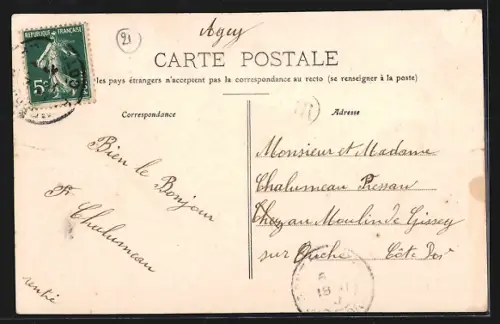 Agey
21
REPUBLIQUE FRANÇAISE
5c
CARTE POSTALE
les pays étrangers n'acceptent pas la correspondance au recto (se renseigner à la poste)
Correspondance
Adresse
Bien le Bonjour
P. Chalumeau
Monsieur et Madame
Chalumeau Pressau
Chez au Moulin de Gissey
sur Ouche Côte Dor